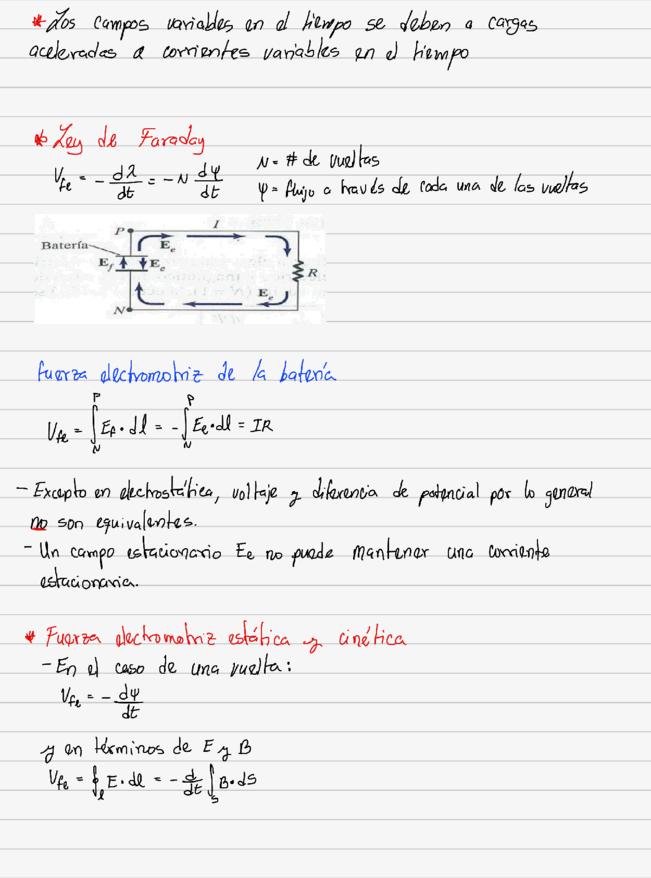 * Los campos variables en el tiempo se deben a cargas
aceleradas a corrientes variables en el tiempo
* Ley de Faraday
V_fe = - dλ/dt = - N dψ/dt
N = # de vueltas
ψ = flujo a través de cada una de las vueltas
I
P
Batería
E_e
E_f
E_e
R
E_e
N
fuerza electromotriz de la batería
V_fe = ∫_N^P E_f · dl = - ∫_N^P E_e · dl = IR
- Excepto en electrostática, voltaje y diferencia de potencial por lo general
no son equivalentes.
- Un campo estacionario E_e no puede mantener una corriente
estacionaria.
* Fuerza electromotriz estática y cinética
- En el caso de una vuelta:
V_fe = - dψ/dt
y en términos de E y B
V_fe = ∮_l E · dl = - d/dt ∫_s B · ds